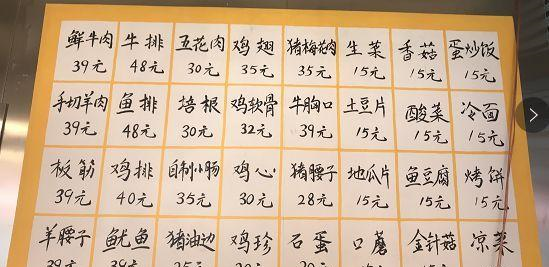 鲜牛肉 牛排 五花肉 鸡翅 猪梅花肉 生菜 香菇 蛋炒饭
39元 48元 30元 35元 35元 15元 15元 15元
手切羊肉 鱼排 培根 鸡软骨 牛胸口 土豆片 酸菜 冷面
39元 48元 30元 32元 39元 15元 15元 15元
板筋 鸡排 自制小肠 鸡心 猪腰子 地瓜片 鱼豆腐 烤饼
39元 40元 35元 30元 28元 15元 15元 15元
羊腰子 鱿鱼 猪油边 鸡珍 石蛋 口蘑 金针菇 凉菜